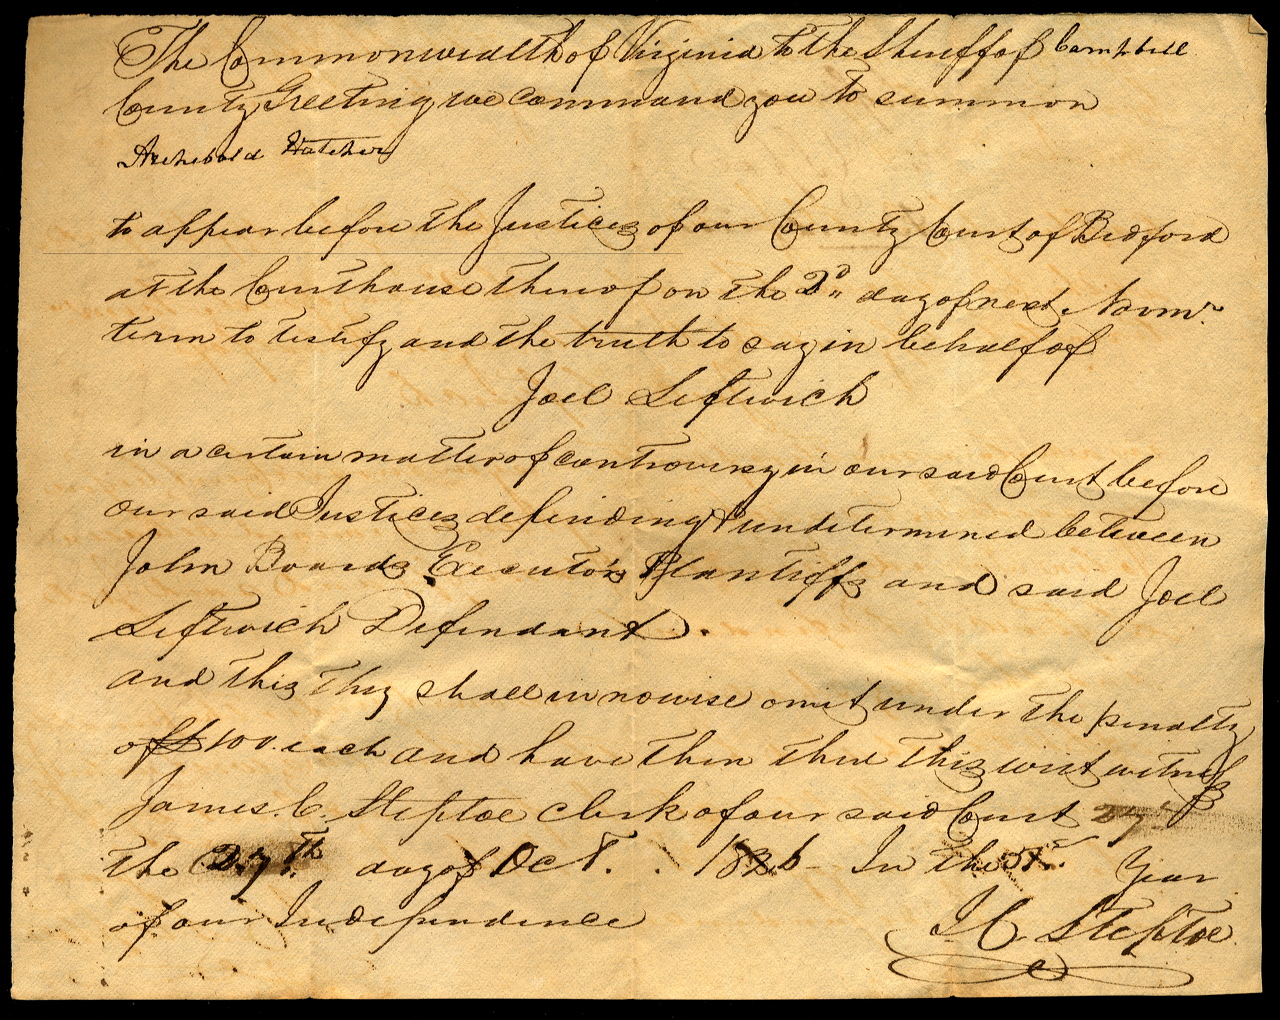 The Commonwealth of Virginia to the Sheriff of Campbell
County Greeting we command you to summon
Archebald Hatcher
to appear before the Justices of our County Court of Bedford
at the Courthouse thereof on the 2d day of next Novmr
term to testify and the truth to say in behalf of
Joel Leftwich
in a certain matter of controversy in our said Court before
our said Justices depending & undetermined between
John Boards Executors Plantiffs and said Joel
Leftwich Defendant.
and this they shall in nowise omit under the penalty
of £100. each and have then there this writ witness
James. C. Steptoe clerk of our said Court 27
the 27.th day of Oct. 1826 In the 51st Year
of our Independence
J C. Steptoe